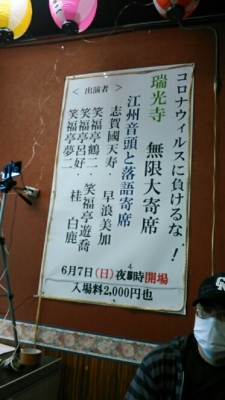 コロナウィルスに負けるな!
瑞光寺 無限大寄席
江州音頭と落語寄席
<出演者>
志賀國天寿・早浪美加
笑福亭鶴二・笑福亭遊喬
笑福亭呂好・桂 白鹿
笑福亭夢二
6月7日(日)夜4時開場
入場料2,000円也